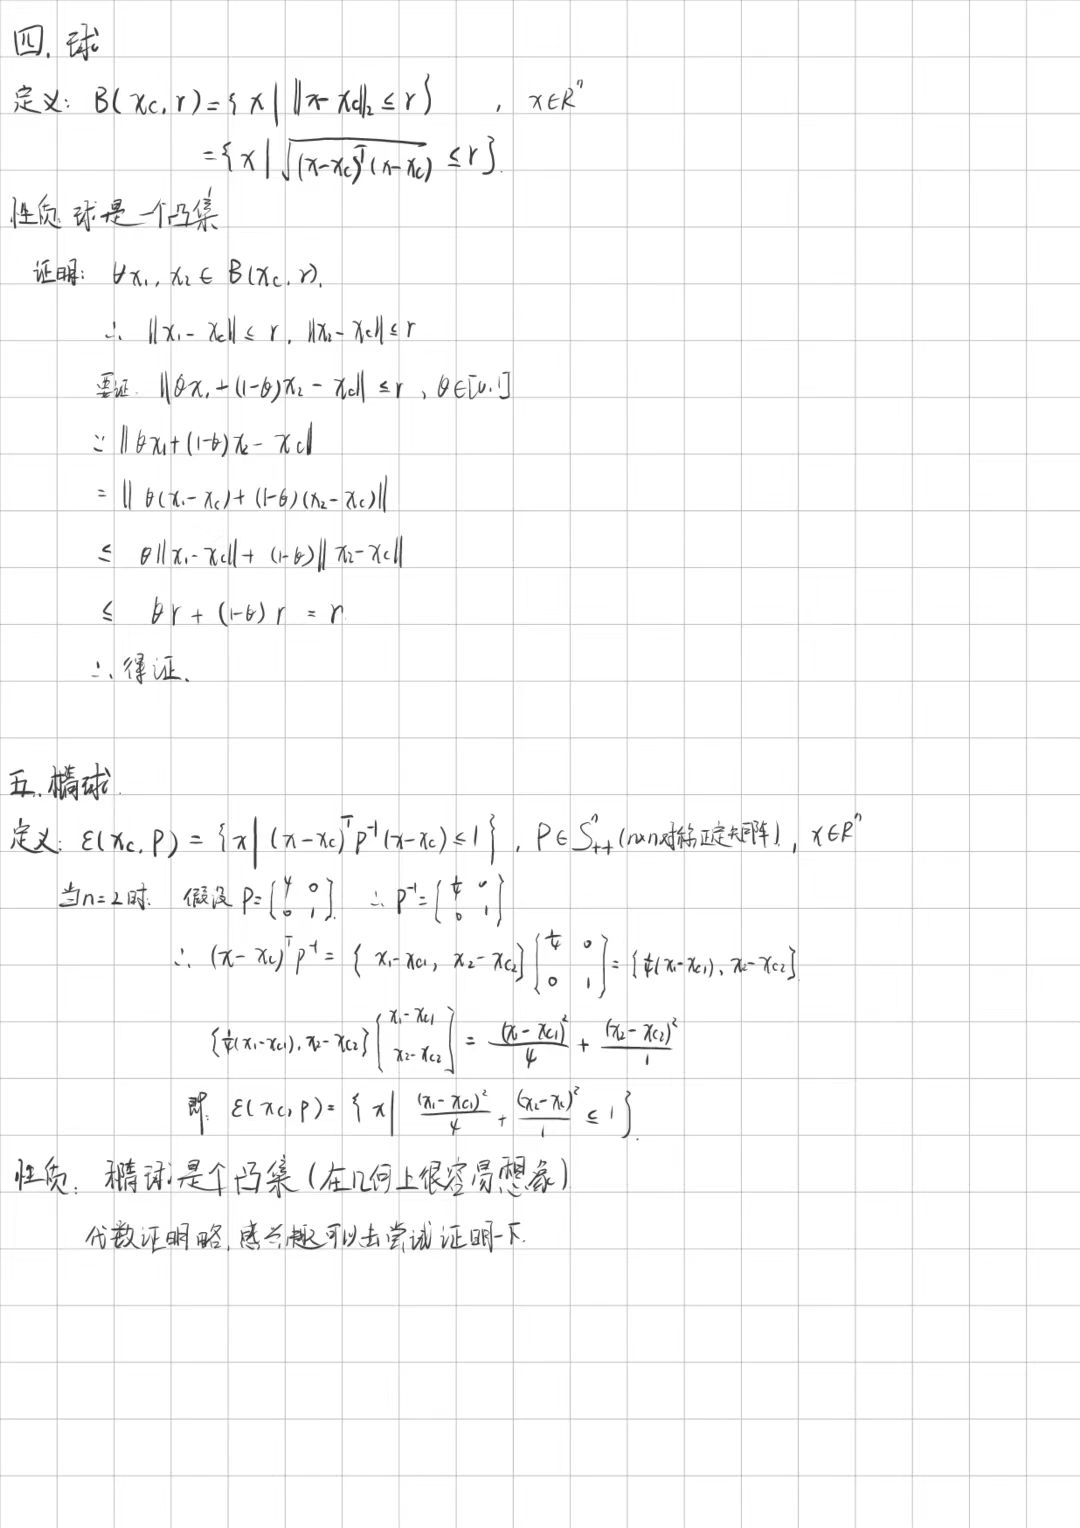 四. 球
定义: B(x_c, r) = { x | ‖x - x_c‖₂ ≤ r } , x∈Rⁿ
= { x | √((x-x_c)ᵀ(x-x_c)) ≤ r }.
性质 球是一个凸集
证明: ∀x₁, x₂ ∈ B(x_c, r).
∴ ‖x₁ - x_c‖ ≤ r, ‖x₂ - x_c‖ ≤ r
要证 ‖θx₁ + (1-θ)x₂ - x_c‖ ≤ r , θ∈[0,1]
∵ ‖θx₁ + (1-θ)x₂ - x_c‖
= ‖θ(x₁ - x_c) + (1-θ)(x₂ - x_c)‖
≤ θ‖x₁ - x_c‖ + (1-θ)‖x₂ - x_c‖
≤ θr + (1-θ)r = r
∴ 得证.
五. 椭球
定义: ε(x_c, P) = { x | (x - x_c)ᵀ P⁻¹ (x - x_c) ≤ 1 } , P∈Sⁿ₊₊ (n×n对称正定矩阵) , x∈Rⁿ
当n=2时. 假设 P = [4 0; 0 1] ∴ P⁻¹ = [1/4 0; 0 1]
∴ (x - x_c)ᵀ P⁻¹ = { x₁ - x_c1, x₂ - x_c2 } [1/4 0; 0 1] = { 1/4(x₁ - x_c1), x₂ - x_c2 }
{ 1/4(x₁ - x_c1), x₂ - x_c2 } [x₁ - x_c1; x₂ - x_c2] = (x₁ - x_c1)²/4 + (x₂ - x_c2)²/1
即: ε(x_c, P) = { x | (x₁ - x_c1)²/4 + (x₂ - x_c)²/1 ≤ 1 }.
性质: 椭球是个凸集 (在几何上很容易想象)
代数证明略, 感兴趣可以去尝试证明一下.